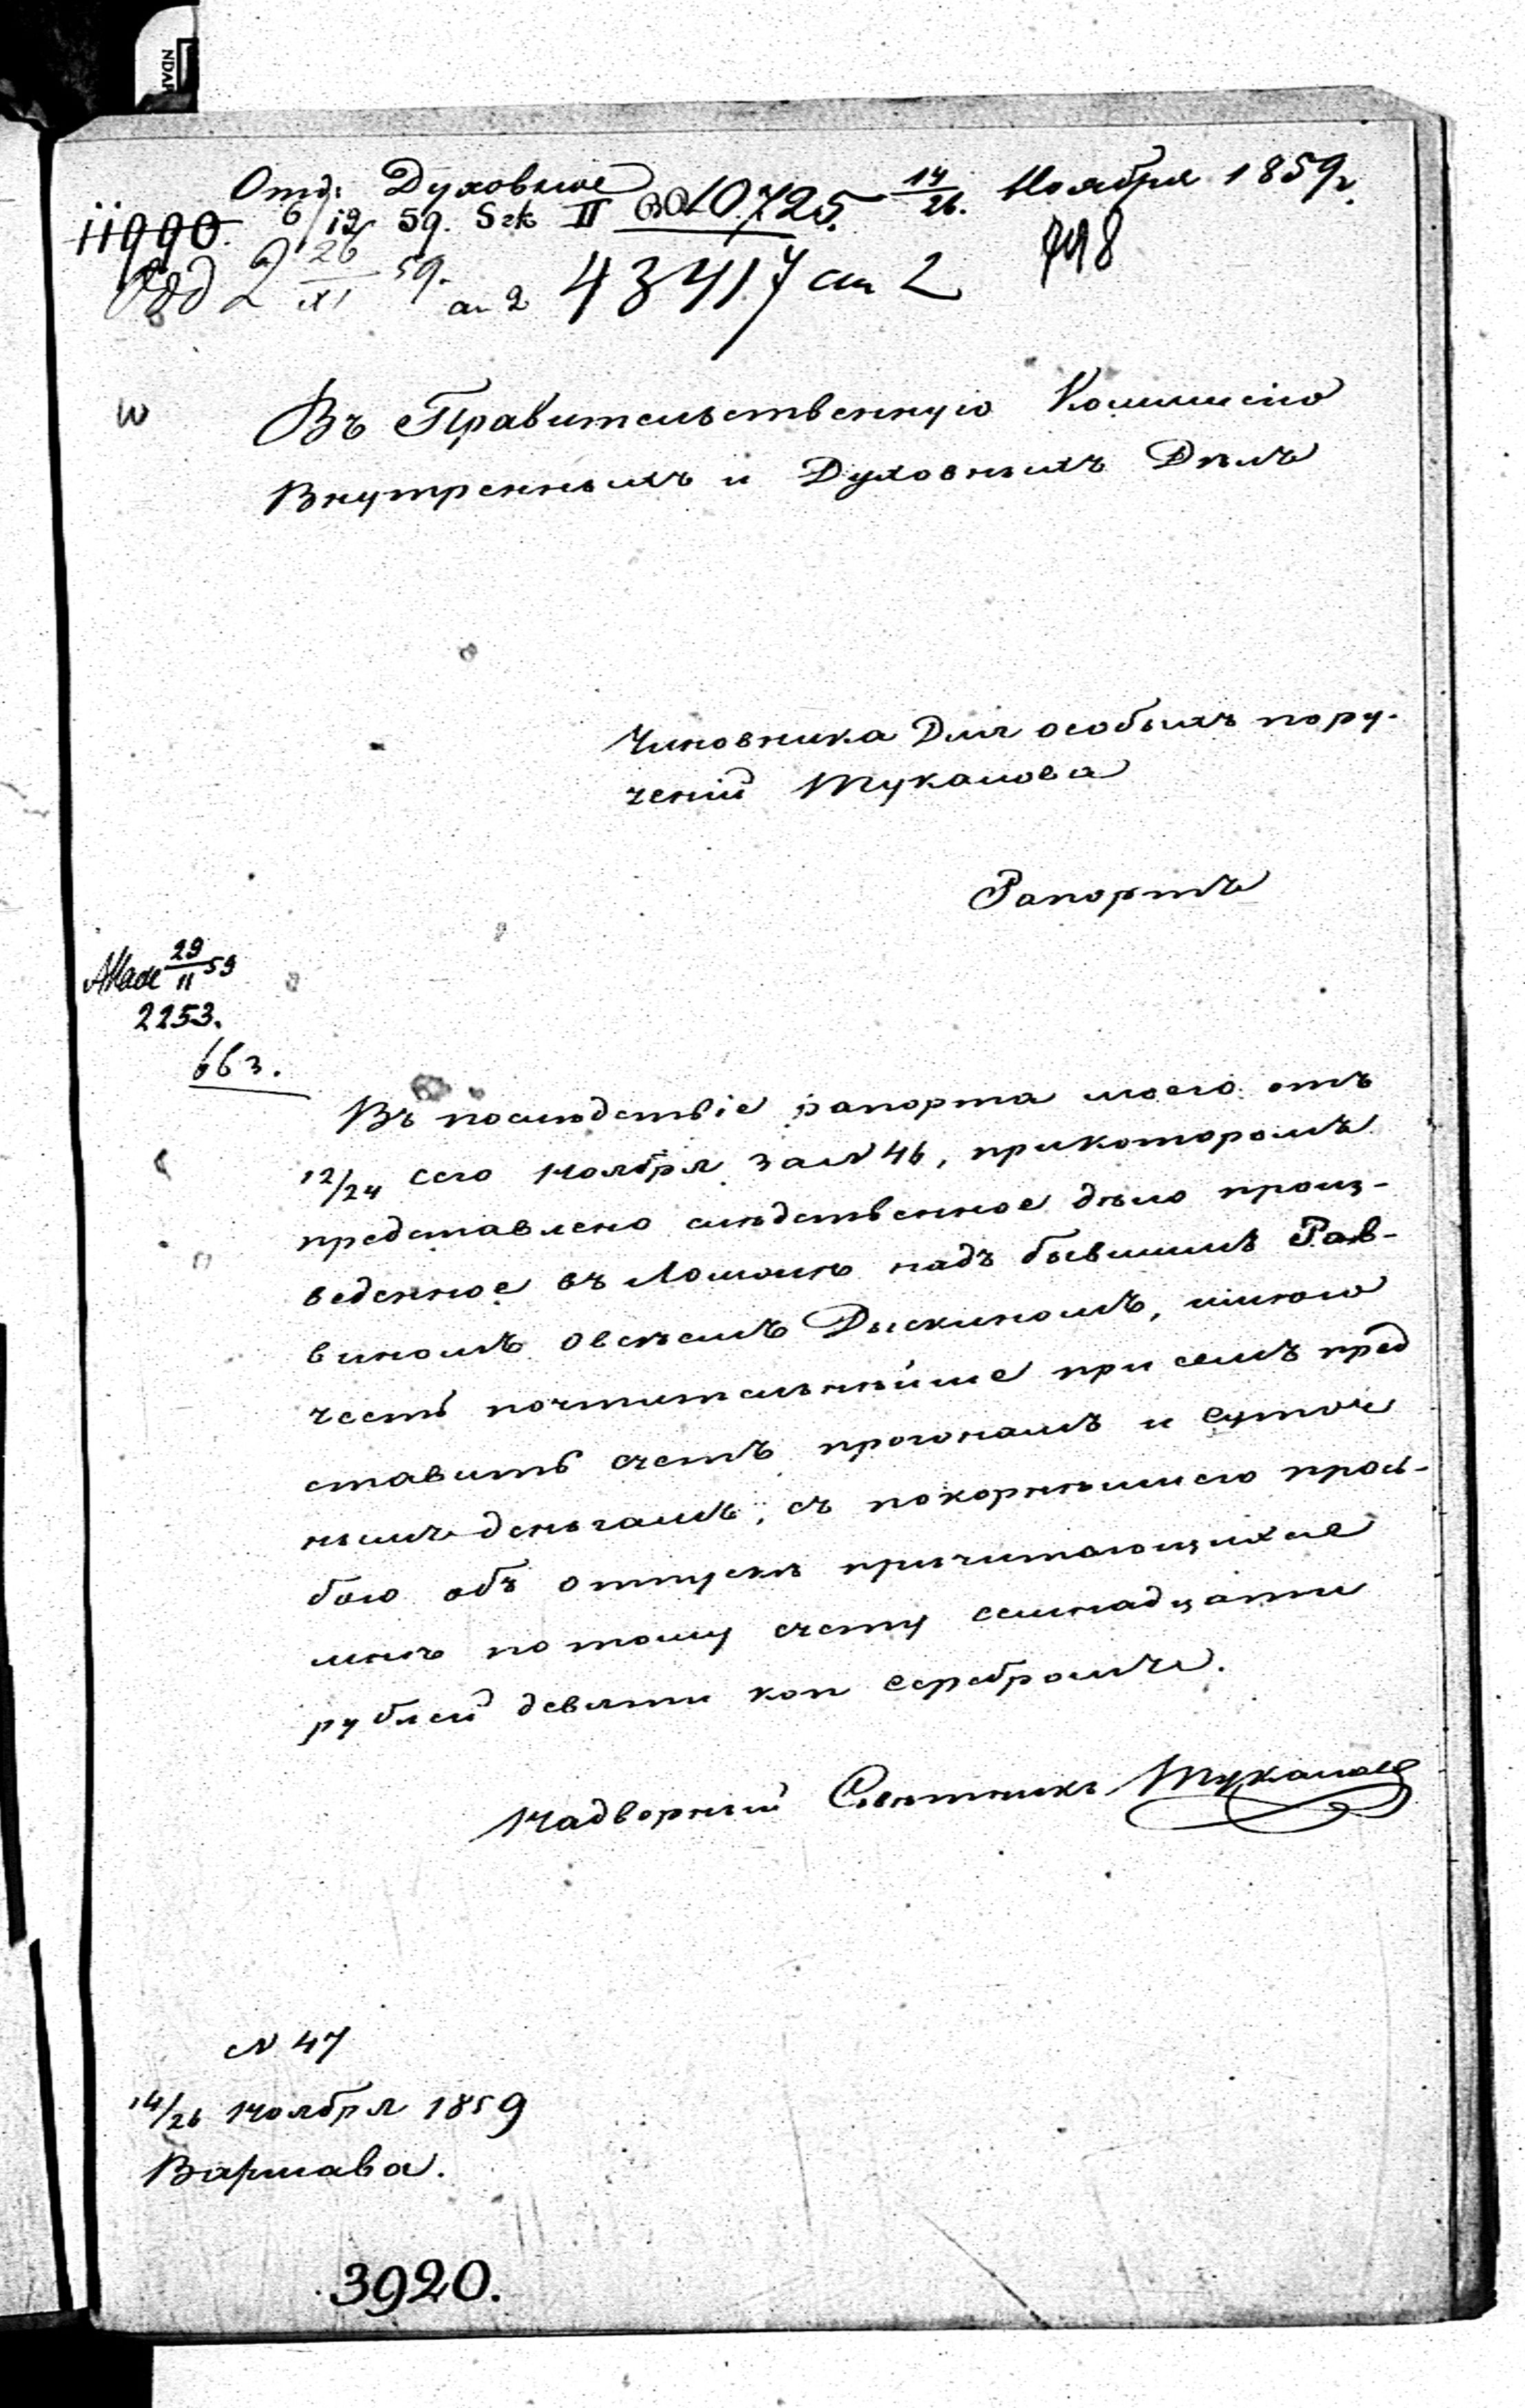 Отд: Духовное 10725. 14/26. Ноября 1859 г.
11990. 6/12 59. Sek II
26/XI 59. 43417 718
Въ Правительственную Коммисію
Внутреннихъ и Духовныхъ Дѣлъ
Чиновника Для особыхъ пору-
ченій Тукалова
Рапортъ
29/11 59
2253.
663.
Въ послѣдствіе рапорта моего отъ
12/24 сего Ноября за N 46, прикоторомъ
представлено слѣдственное дѣло произ-
веденное въ Ломжѣ надъ бывшимъ Рав-
виномъ Дыскиномъ, имѣю
честь почтительнѣйше при семъ пред
ставить счетъ прогонамъ и суточ
нымъ деньгамъ, съ покорнѣйшею прось-
бою объ отпускѣ причитающихся
мнѣ по тому счету семнадцати
рублей девяти коп серебромъ.
Надворный Совѣтникъ Тукаловъ
N 47
14/26 Ноября 1859
Варшава.
3920.